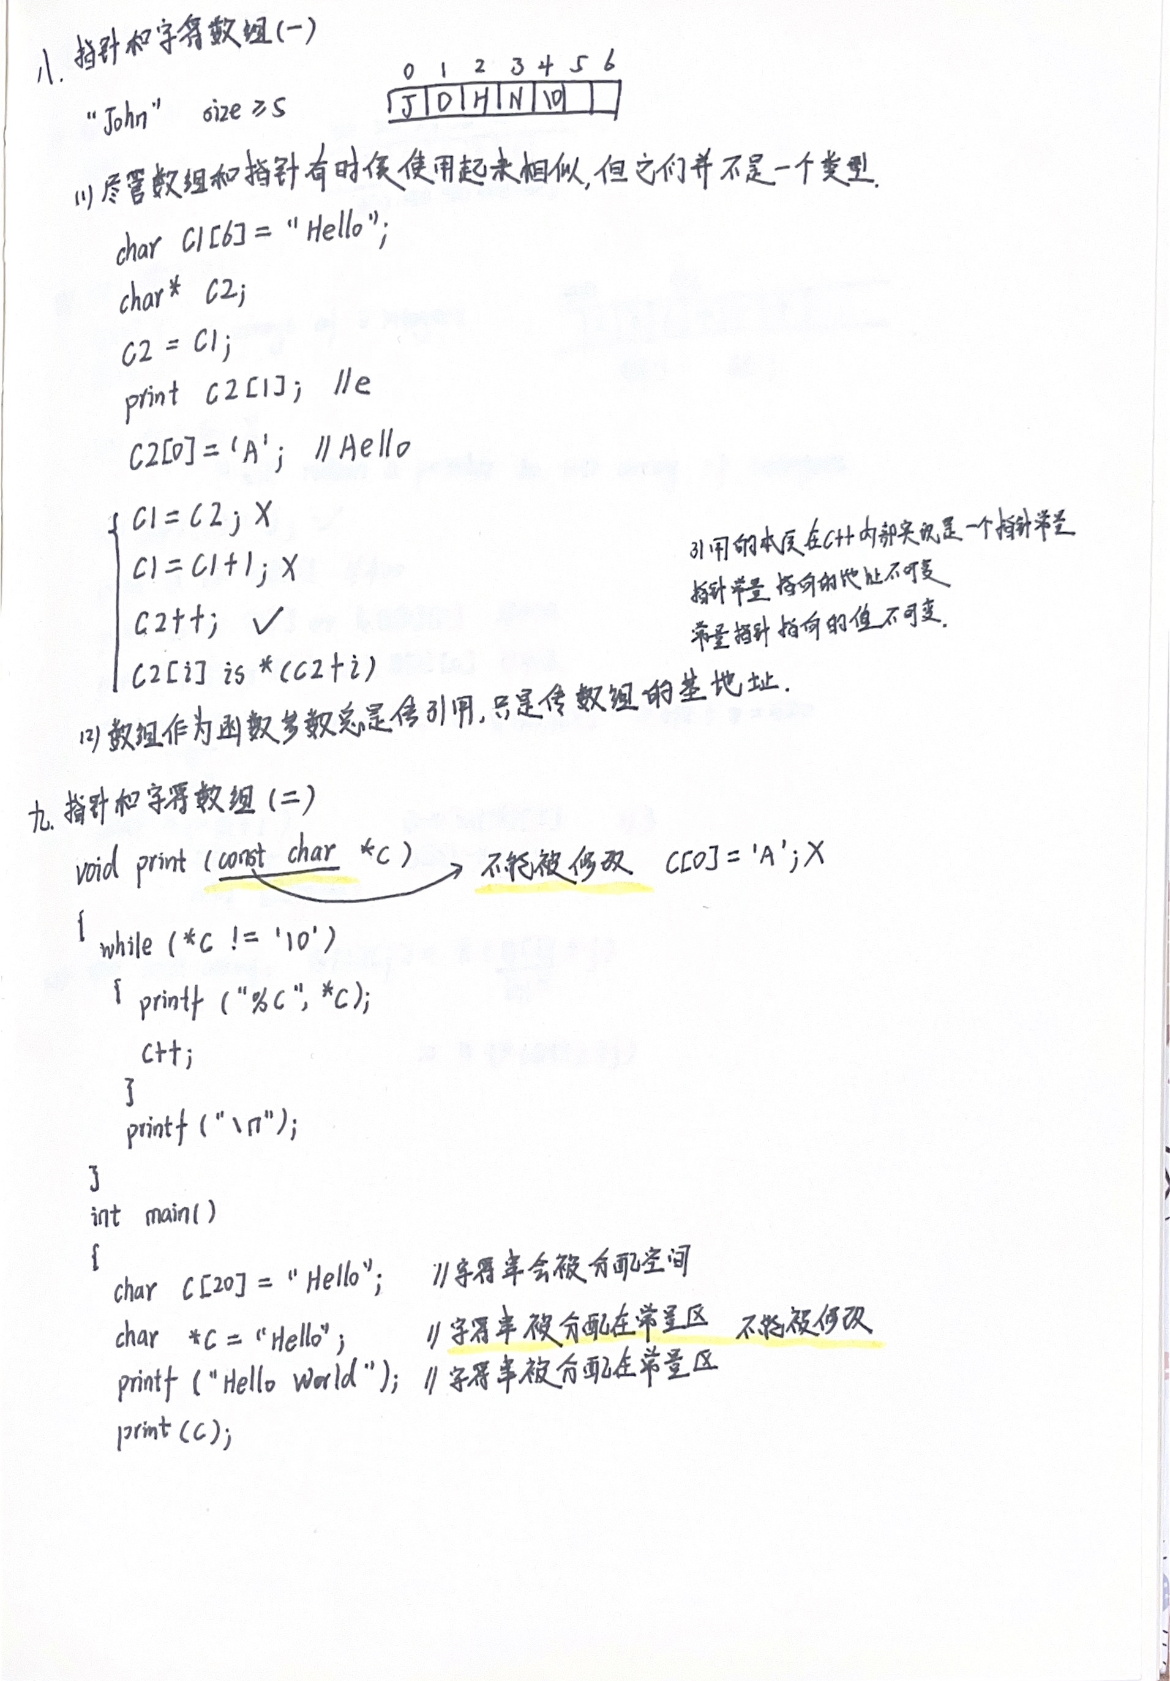 八. 指针和字符数组(一)
"John" size ≥ 5
0 1 2 3 4 5 6
J O H N \0
(1) 尽管数组和指针有时候使用起来相似,但它们并不是一个类型.
char C1[6] = "Hello";
char* C2;
C2 = C1;
print C2[1]; //e
C2[0] = 'A'; //Aello
C1 = C2; X
C1 = C1+1; X
C2++; ✓
C2[i] is *(C2+i)
引用的本质在C++内部实现是一个指针常量
指针常量 指向的地址不可变
常量指针 指向的值不可变.
(2) 数组作为函数参数总是传引用,只是传数组的基地址.
九. 指针和字符数组(二)
void print (const char *C) 不能被修改 C[0] = 'A'; X
{
while (*C != '\0')
{ printf ("%C", *C);
C++;
}
printf ("\n");
}
int main()
{
char C[20] = "Hello"; //字符串会被分配空间
char *C = "Hello"; //字符串被分配在常量区 不能被修改
printf ("Hello World"); //字符串被分配在常量区
print (C);